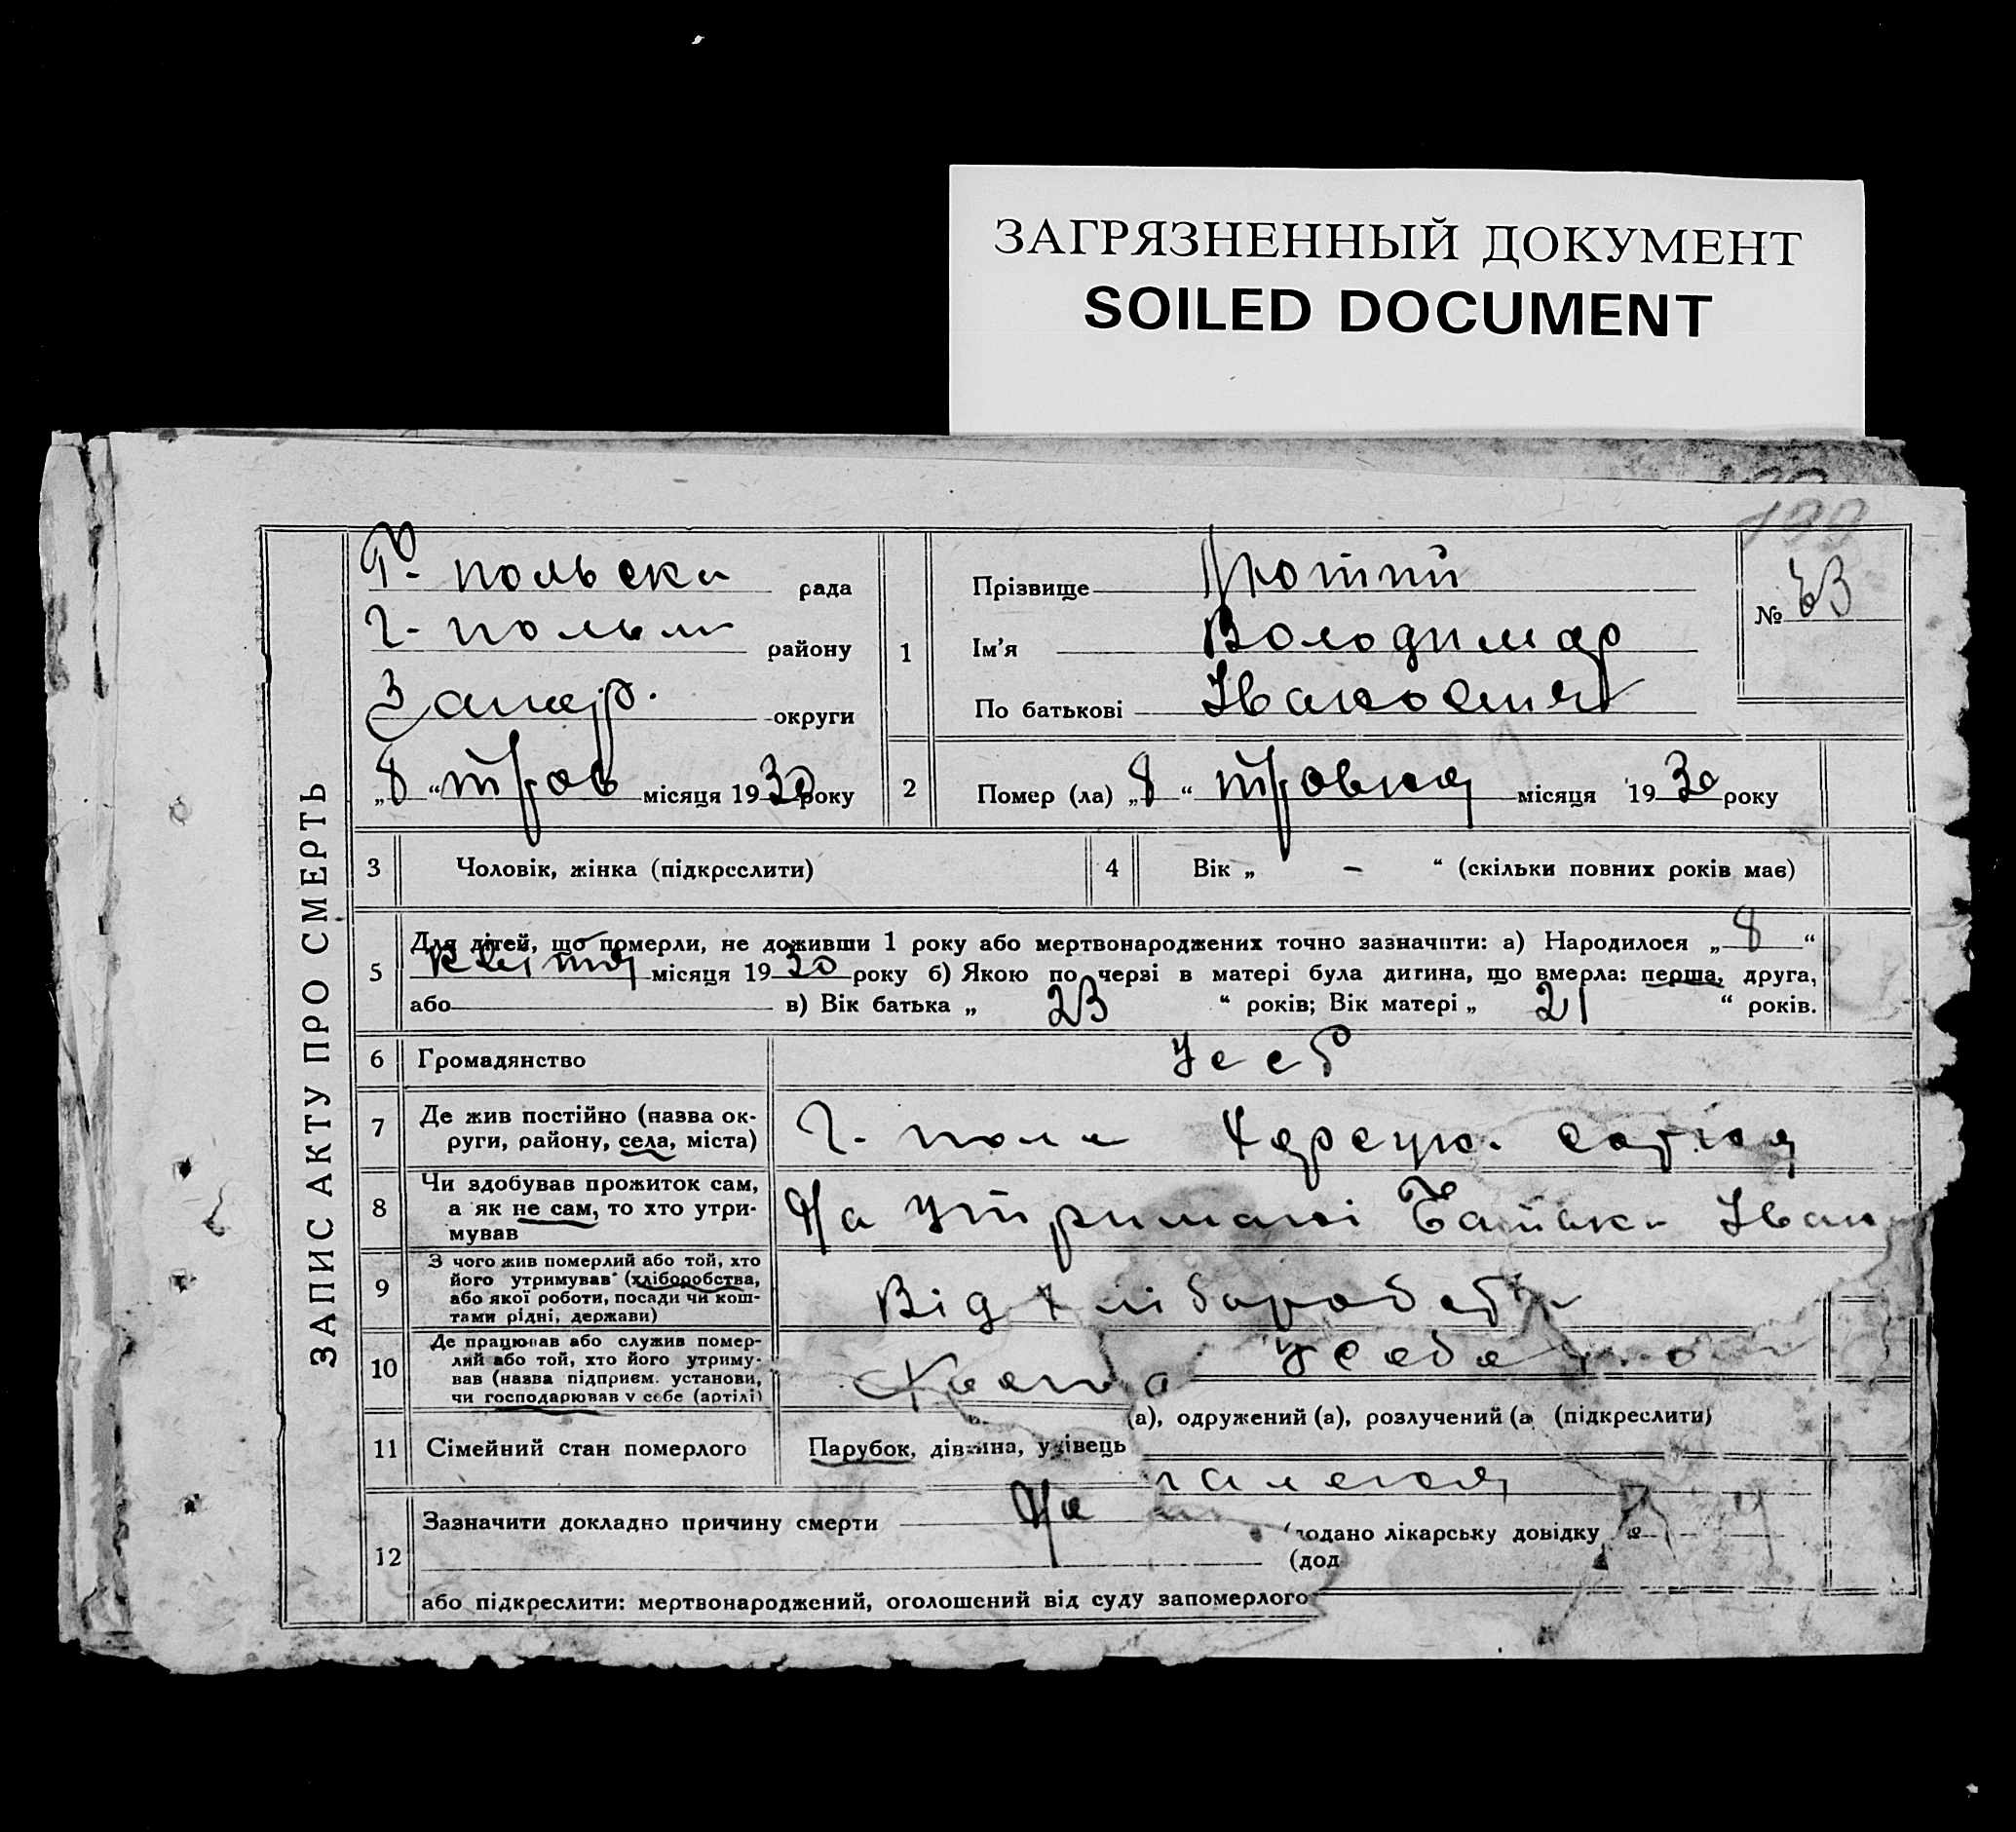 ЗАГРЯЗНЕННЫЙ ДОКУМЕНТ
SOILED DOCUMENT
ЗАПИС АКТУ ПРО СМЕРТЬ
польска рада
району
Запор. округи
„8“ трав місяця 1930 року
1
Прізвище
Ім'я Володимир
По батькові Іванович
№
2
Помер (ла) „8“ травня місяця 1930 року
3
Чоловік, жінка (підкреслити)
4
Вік „ — “ (скільки повних років має)
5
Для дітей, що померли, не доживши 1 року або мертвонароджених точно зазначити: а) Народилося „8“
квітня місяця 1930 року б) Якою по черзі в матері була дитина, що вмерла: перша, друга,
або в) Вік батька „23“ років; Вік матері „21“ років.
6
Громадянство
7
Де жив постійно (назва ок-
руги, району, села, міста)
Г. поле
8
Чи здобував прожиток сам,
а як не сам, то хто утри-
мував
На утримані батька Іван
9
З чого жив померлий або той, хто
його утримував (хліборобства,
або якої роботи, посади чи кош-
тами рідні, держави)
Від хліборобства
10
Де працював або служив помер-
лий або той, хто його утриму-
вав (назва підприєм. установи,
чи господарював у себе (артілі)
11
Сімейний стан померлого
Парубок, дівчина, удівець (а), одружений (а), розлучений (а (підкреслити)
12
Зазначити докладно причину смерти
подано лікарську довідку №
(дод
або підкреслити: мертвонароджений, оголошений від суду запомерлого